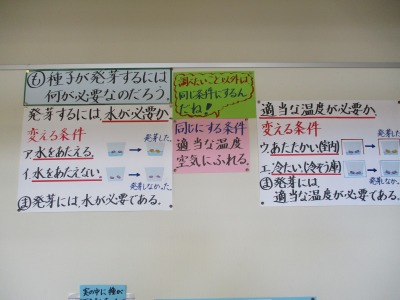 も 種子が発芽するには
何が必要なのだろう。
調べたいこと以外は
同じ条件にするん
だね!
発芽するには水が必要か
変える条件
ア.水をあたえる。
発芽した。
イ.水をあたえない。
発芽しなかった。
ま 発芽には、水が必要である。
同じにする条件
適当な温度
空気にふれる。
適当な温度が必要か
変える条件
ウ.あたたかい(室内)
発芽した。
エ.冷たい(冷ぞう庫)
発芽しなかった。
ま 発芽には、
適当な温度が必要である。
実の中に種が